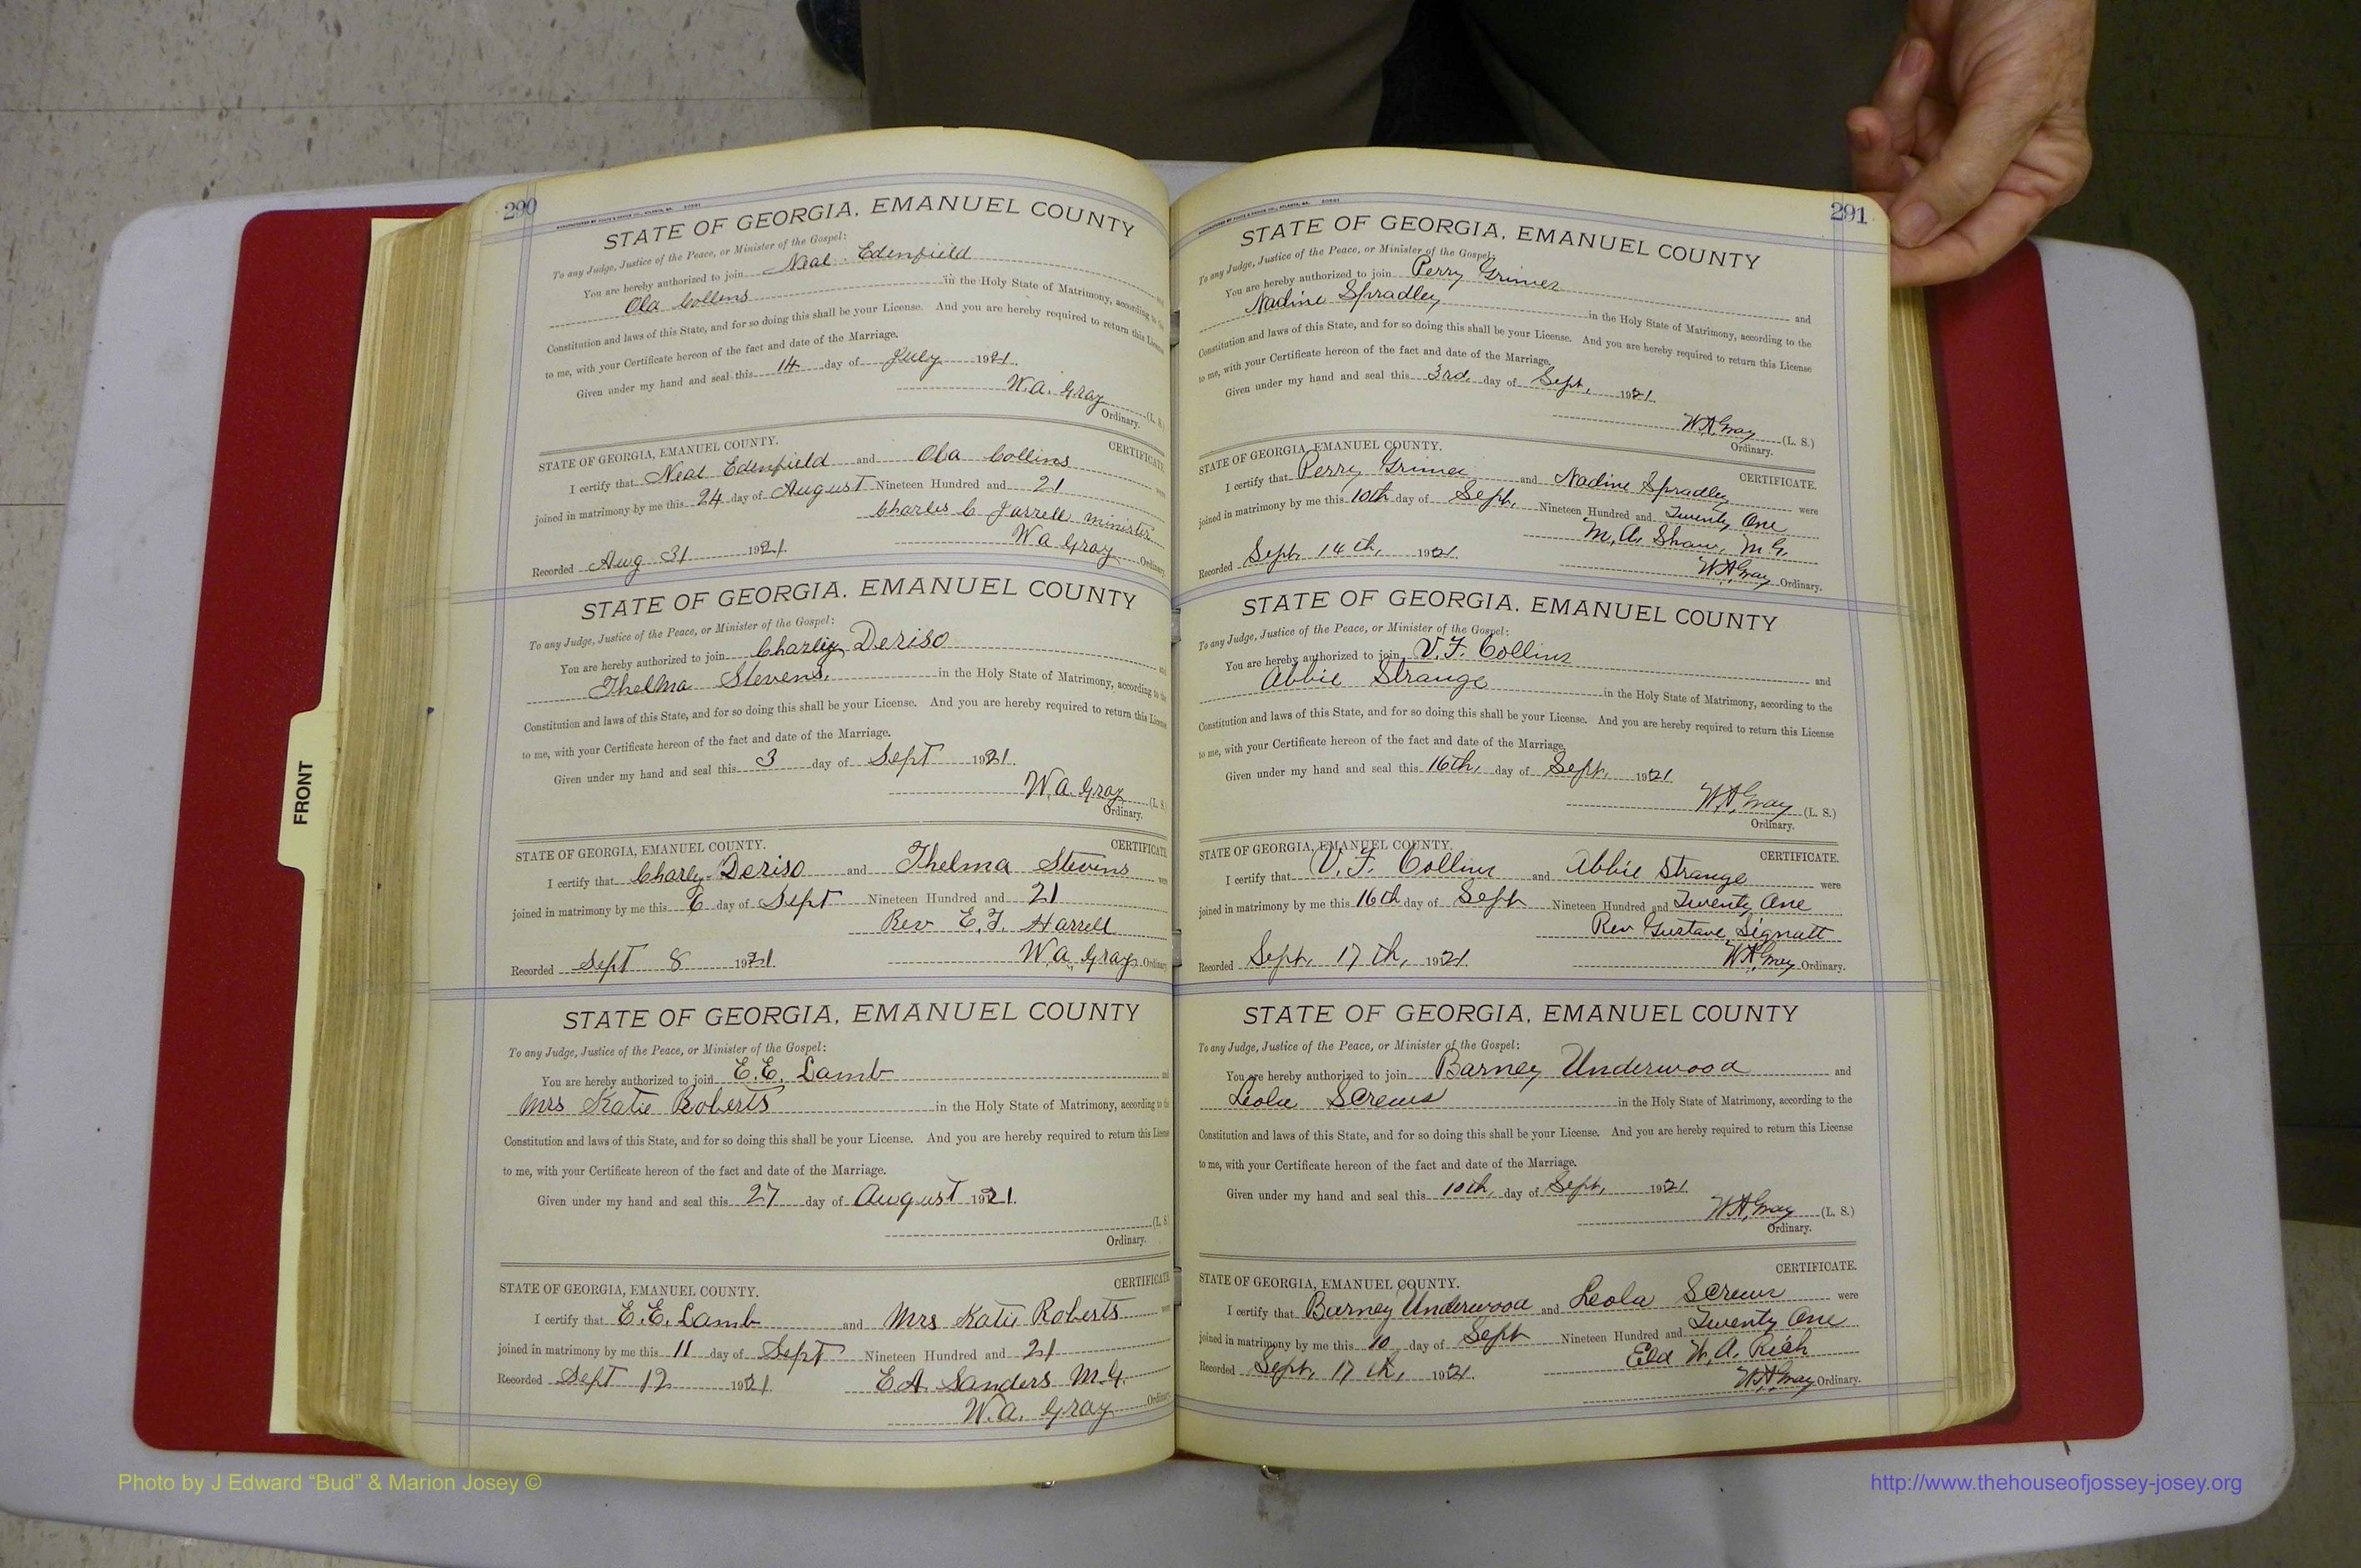 290
STATE OF GEORGIA, EMANUEL COUNTY
To any Judge, Justice of the Peace, or Minister of the Gospel:
You are hereby authorized to join Neal Edenfield
Ola Collins in the Holy State of Matrimony, according to
Constitution and laws of this State, and for so doing this shall be your License. And you are hereby required to return this License
to me, with your Certificate hereon of the fact and date of the Marriage.
Given under my hand and seal this 14 day of July 1921.
W.A. Gray (L. S.)
Ordinary.
STATE OF GEORGIA, EMANUEL COUNTY. CERTIFICATE
I certify that Neal Edenfield and Ola Collins were
joined in matrimony by me this 24 day of August Nineteen Hundred and 21
Charles C Jarrell minister
Recorded Aug 31 1921. W A Gray Ordinary.
STATE OF GEORGIA, EMANUEL COUNTY
To any Judge, Justice of the Peace, or Minister of the Gospel:
You are hereby authorized to join Charley Deriso and
Thelma Stevens. in the Holy State of Matrimony, according to
Constitution and laws of this State, and for so doing this shall be your License. And you are hereby required to return this License
to me, with your Certificate hereon of the fact and date of the Marriage.
Given under my hand and seal this 3 day of Sept 1921.
W.A. Gray (L. S.
Ordinary.
STATE OF GEORGIA, EMANUEL COUNTY. CERTIFICATE
I certify that Charley Deriso and Thelma Stevens were
joined in matrimony by me this 6 day of Sept Nineteen Hundred and 21
Rev E.F. Harrell
Recorded Sept 8 1921. W.A. Gray Ordinary
STATE OF GEORGIA, EMANUEL COUNTY
To any Judge, Justice of the Peace, or Minister of the Gospel:
You are hereby authorized to join E.E. Lamb and
Mrs Katie Roberts in the Holy State of Matrimony, according to the
Constitution and laws of this State, and for so doing this shall be your License. And you are hereby required to return this License
to me, with your Certificate hereon of the fact and date of the Marriage.
Given under my hand and seal this 27 day of August 1921.
(L. S.
Ordinary.
STATE OF GEORGIA, EMANUEL COUNTY. CERTIFICATE
I certify that E.E. Lamb and Mrs Katie Roberts were
joined in matrimony by me this 11 day of Sept Nineteen Hundred and 21
Recorded Sept 12 1921. E.A. Sanders M.G.
W.A. Gray Ordinary
291
STATE OF GEORGIA, EMANUEL COUNTY
To any Judge, Justice of the Peace, or Minister of the Gospel:
You are hereby authorized to join Perry Grimes and
Nadine Spradley in the Holy State of Matrimony, according to the
Constitution and laws of this State, and for so doing this shall be your License. And you are hereby required to return this License
to me, with your Certificate hereon of the fact and date of the Marriage.
Given under my hand and seal this 3rd. day of Sept. 1921.
W.A. Gray (L. S.)
Ordinary.
STATE OF GEORGIA, EMANUEL COUNTY. CERTIFICATE.
I certify that Perry Grimes and Nadine Spradley were
joined in matrimony by me this 10th day of Sept. Nineteen Hundred and Twenty One
M.A. Shaw, M.G.
Recorded Sept. 14th, 1921. W.A. Gray Ordinary.
STATE OF GEORGIA, EMANUEL COUNTY
To any Judge, Justice of the Peace, or Minister of the Gospel:
You are hereby authorized to join V.F. Collins and
Abbie Strange in the Holy State of Matrimony, according to the
Constitution and laws of this State, and for so doing this shall be your License. And you are hereby required to return this License
to me, with your Certificate hereon of the fact and date of the Marriage.
Given under my hand and seal this 16th, day of Sept. 1921.
W.A. Gray (L. S.)
Ordinary.
STATE OF GEORGIA, EMANUEL COUNTY. CERTIFICATE.
I certify that V.F. Collins and Abbie Strange were
joined in matrimony by me this 16th day of Sept Nineteen Hundred and Twenty One
Rev Gustave Signatt
Recorded Sept. 17th, 1921. W.A. Gray Ordinary.
STATE OF GEORGIA, EMANUEL COUNTY
To any Judge, Justice of the Peace, or Minister of the Gospel:
You are hereby authorized to join Barney Underwood and
Leola Screws in the Holy State of Matrimony, according to the
Constitution and laws of this State, and for so doing this shall be your License. And you are hereby required to return this License
to me, with your Certificate hereon of the fact and date of the Marriage.
Given under my hand and seal this 10th, day of Sept, 1921.
W.A. Gray (L. S.)
Ordinary.
STATE OF GEORGIA, EMANUEL COUNTY. CERTIFICATE.
I certify that Barney Underwood and Leola Screws were
joined in matrimony by me this 10 day of Sept Nineteen Hundred and Twenty One
Eld W.A. Rich
Recorded Sept. 17th, 1921. W.A. Gray Ordinary.
FRONT
Photo by J Edward “Bud” & Marion Josey ©
http://www.thehouseofjossey-josey.org